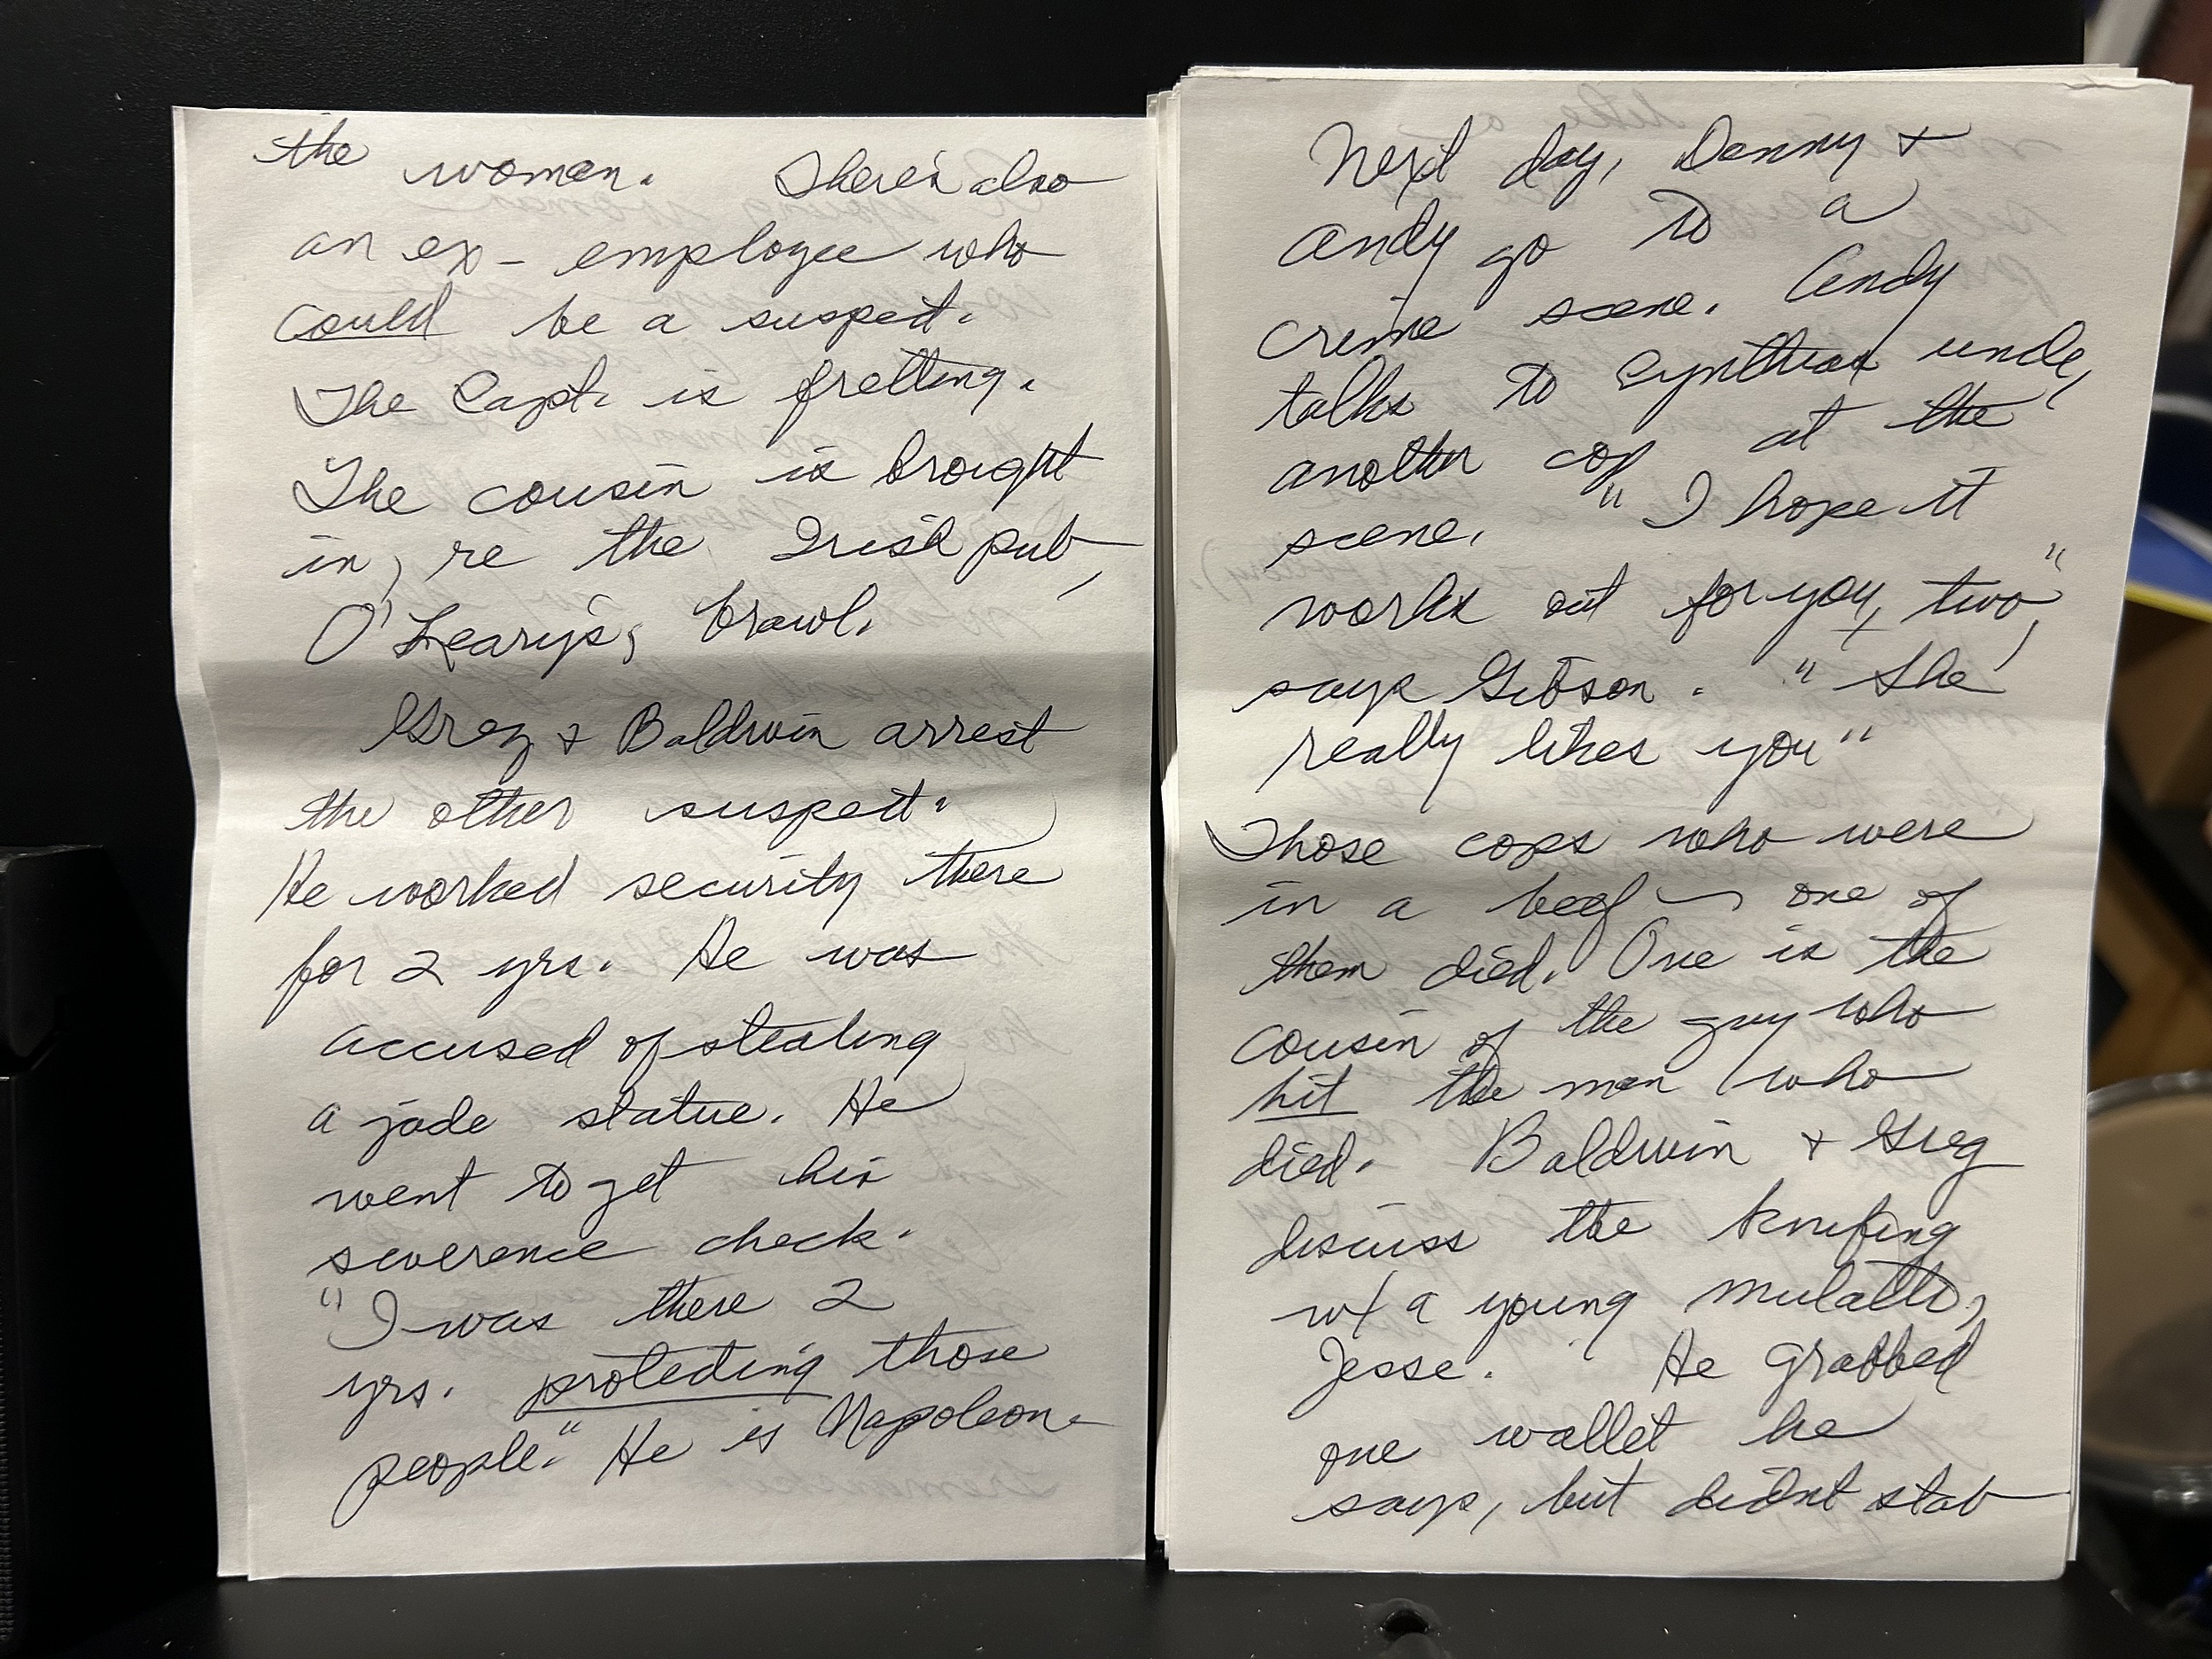 the woman. There's also
an ex-employee who
could be a suspect.
The Capt. is fretting.
The cousin is brought
in, re the Irish pub,
O'Leary's, brawl.
Greg & Baldwin arrest
the other suspect.
He worked security there
for 2 yrs. He was
accused of stealing
a jade statue. He
went to get his
severence check.
"I was there 2
yrs. protecting those
people." He is Napoleon
Next day, Danny &
Andy go to a
crime scene. Andy
talks to Cynthias uncle,
another cop at the
scene. "I hope it
works out for you, two",
says Gibson. "She
really likes you"
Those cops who were
in a beef – one of
them died. One is the
cousin of the guy who
hit the man who
died. Baldwin & Greg
discuss the knifing
w/ a young mulatto,
Jesse. He grabbed
one wallet he
says, but didn't stab